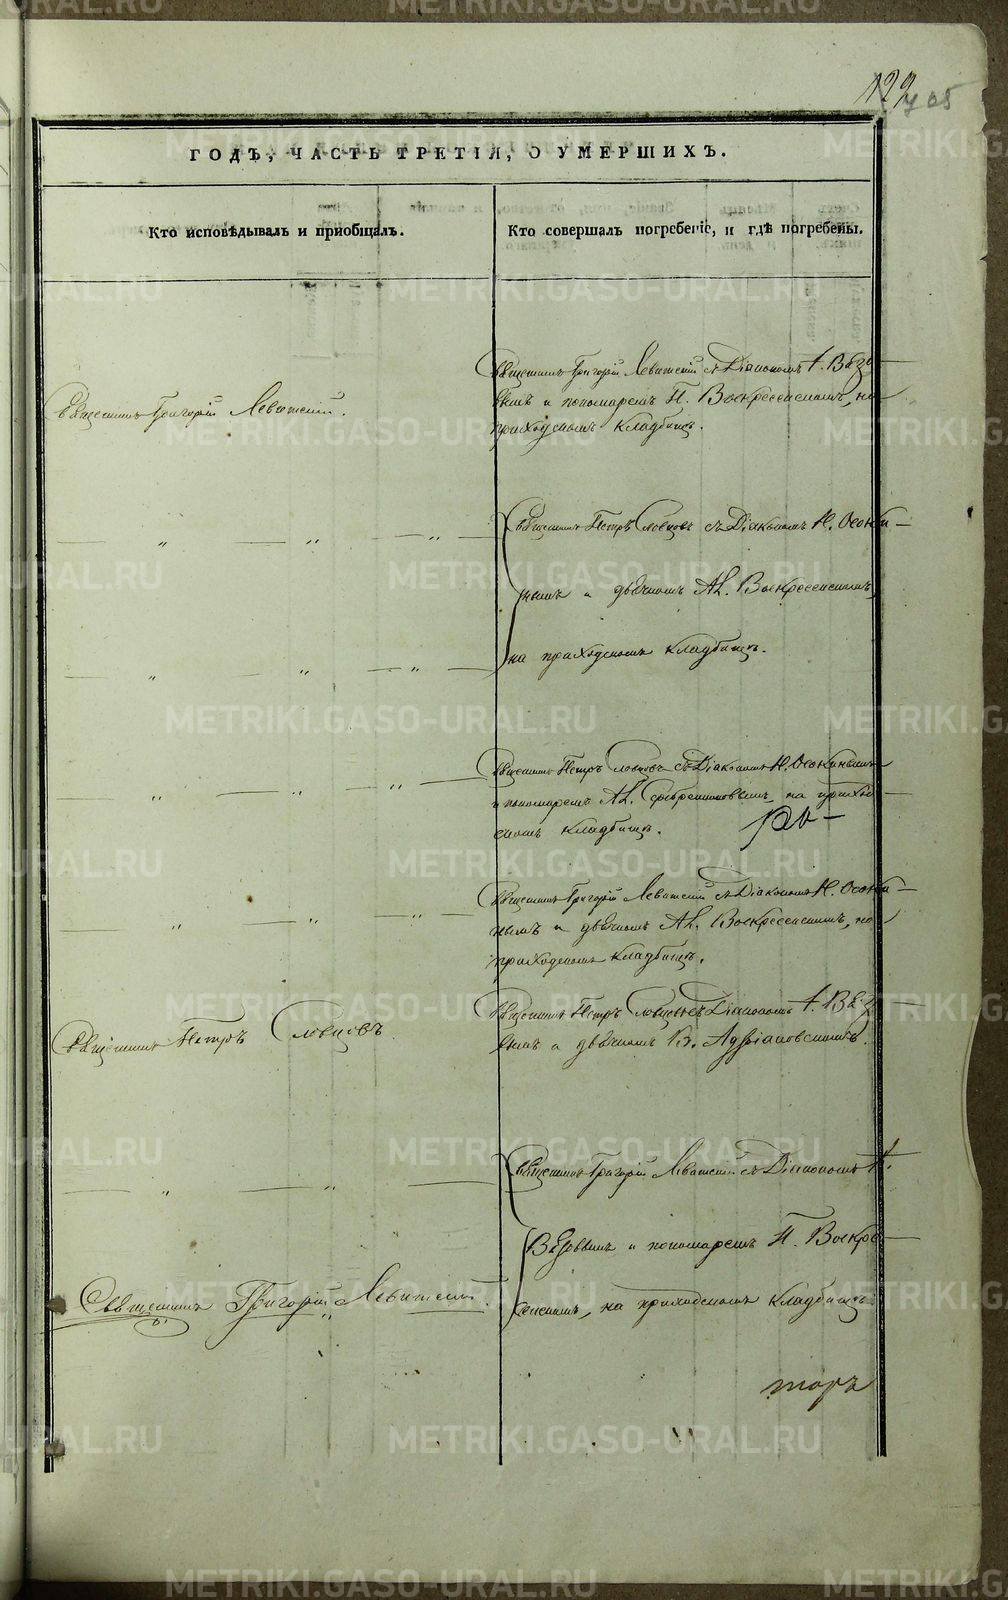 122
405
ГОДЪ, ЧАСТЬ ТРЕТІЯ, О УМЕРШИХЪ.
Кто исповѣдывалъ и приобщалъ.
Кто совершалъ погребеніе, и гдѣ погребены.
Священникъ Григорій Левитскій.
Священникъ Григорій Левитскій съ Діакономъ І. Вязо-
вымъ и пономаремъ П. Воскресенскимъ, на
приходскомъ кладбищѣ.
— „ — „ — „ —
Священникъ Петръ Словцовъ съ Діакономъ Н. Осоки-
нымъ и дьячкомъ Ал. Воскресенскимъ,
на приходскомъ кладбищѣ.
— „ — „ — „ —
— „ — „ — „ —
Священникъ Петръ Словцовъ съ Діакономъ Н. Осокинымъ
и пономаремъ Ал. Серебренниковымъ, на приход-
скомъ кладбищѣ.
— „ — „ — „ —
Священникъ Григорій Левитскій съ Діакономъ Н. Осоки-
нымъ и дьячкомъ Ал. Воскресенскимъ, на
приходскомъ кладбищѣ.
Священникъ Петръ Словцовъ
Священникъ Петръ Словцовъ съ Діакономъ І. Вяз
вымъ и дьячкомъ Адріановскимъ.
— „ — „ —
Священникъ Григорій Левитскій съ Діакономъ І.
Вязовымъ и пономаремъ П. Воскре-
сенскимъ, на приходскомъ кладбищѣ
Священникъ Григорій Левитскій.
торъ
METRIKI.GASO-URAL.RU